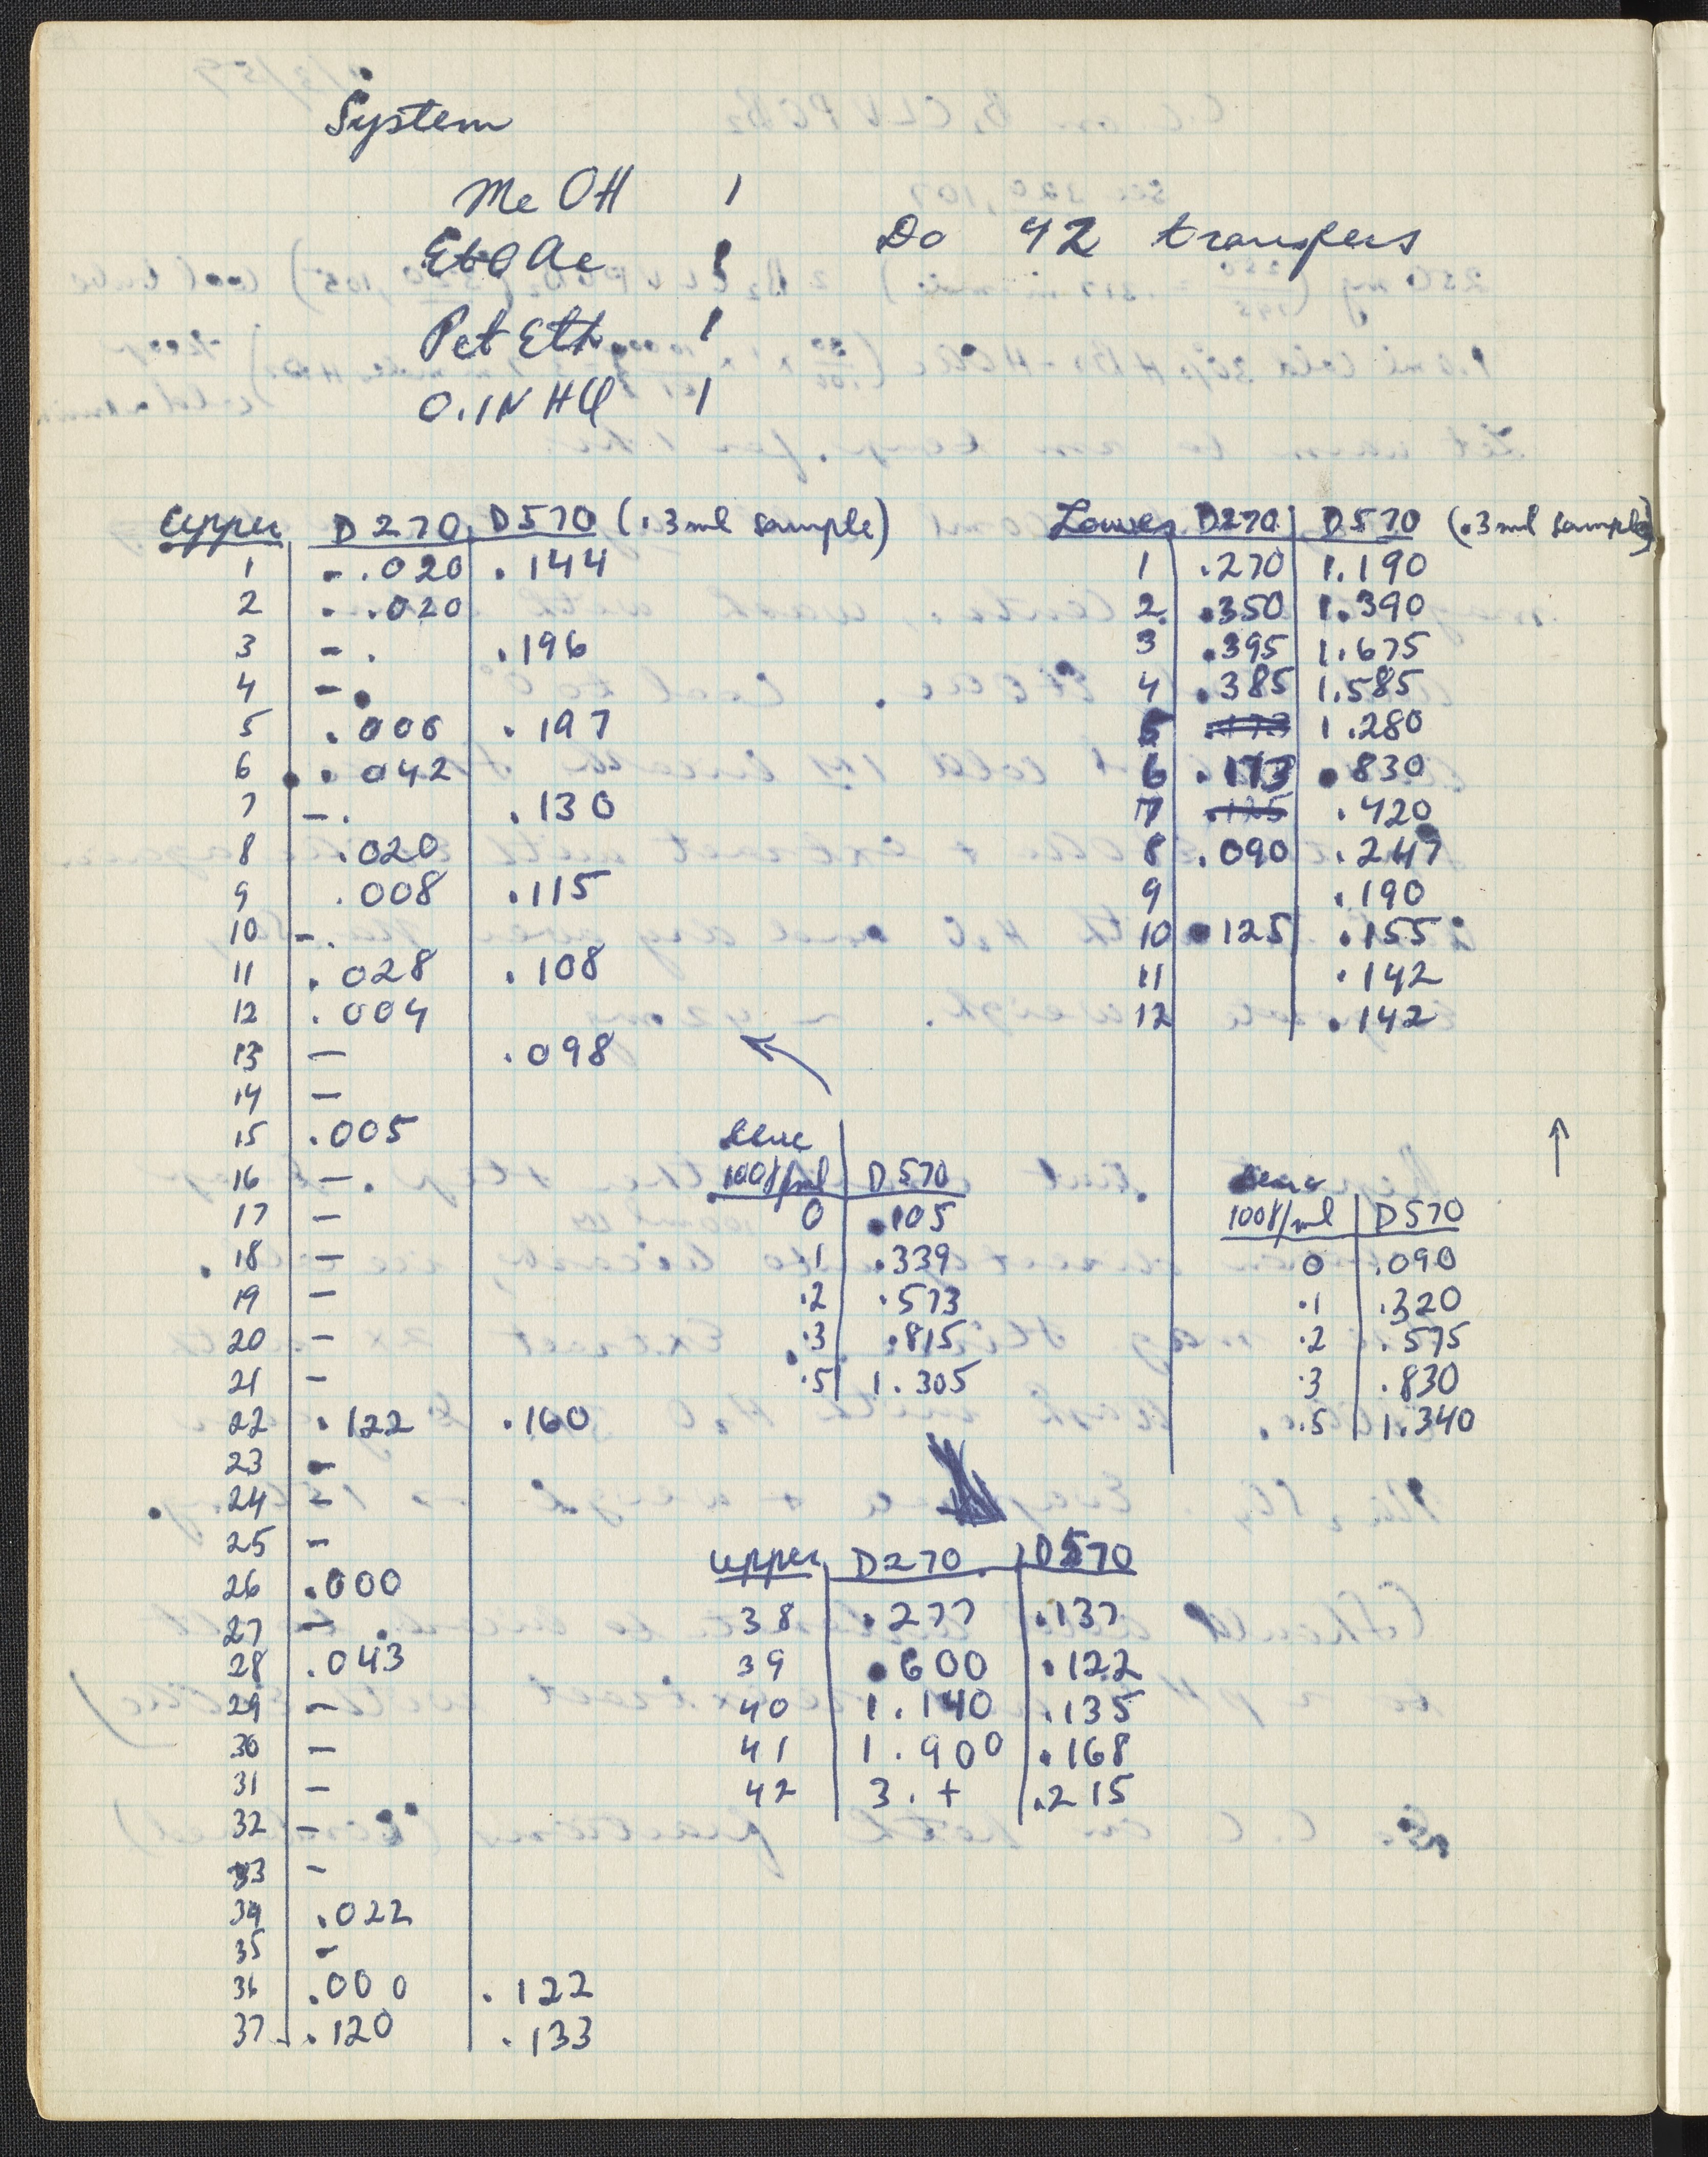 System
MeOH 1
EtOAc 1 Do 42 transfers
Pet Eth 1
0.1N HCl 1
Upper D270 D570 (.3ml sample)
1 -.020 .144
2 -.020
3 -. .196
4 -.
5 .006 .197
6 .042
7 -. .130
8 .020
9 .008 .115
10 -.
11 .028 .108
12 .004
13 — .098
14 —
15 .005
16 —
17 —
18 —
19 —
20 —
21 —
22 .122 .160
23 —
24 —
25 —
26 .000
27 —
28 .043
29 —
30 —
31 —
32 —
33 —
34 .022
35 —
36 .000 .122
37 .120 .133
Lower D270 D570 (.3ml sample)
1 .270 1.190
2 .350 1.390
3 .395 1.675
4 .385 1.585
5 1.280
6 .173 .830
7 .125 .420
8 .090 .247
9 .190
10 .125 .155
11 .142
12 .142
←
leuc
100γ/ml D570
0 .105
.1 .339
.2 .573
.3 .815
.5 1.305
↑
leuc
100γ/ml D570
0 .090
.1 .320
.2 .575
.3 .830
.5 1.340
upper D270 D570
38 .277 .137
39 .600 .122
40 1.140 .135
41 1.900 .168
42 3.+ .215